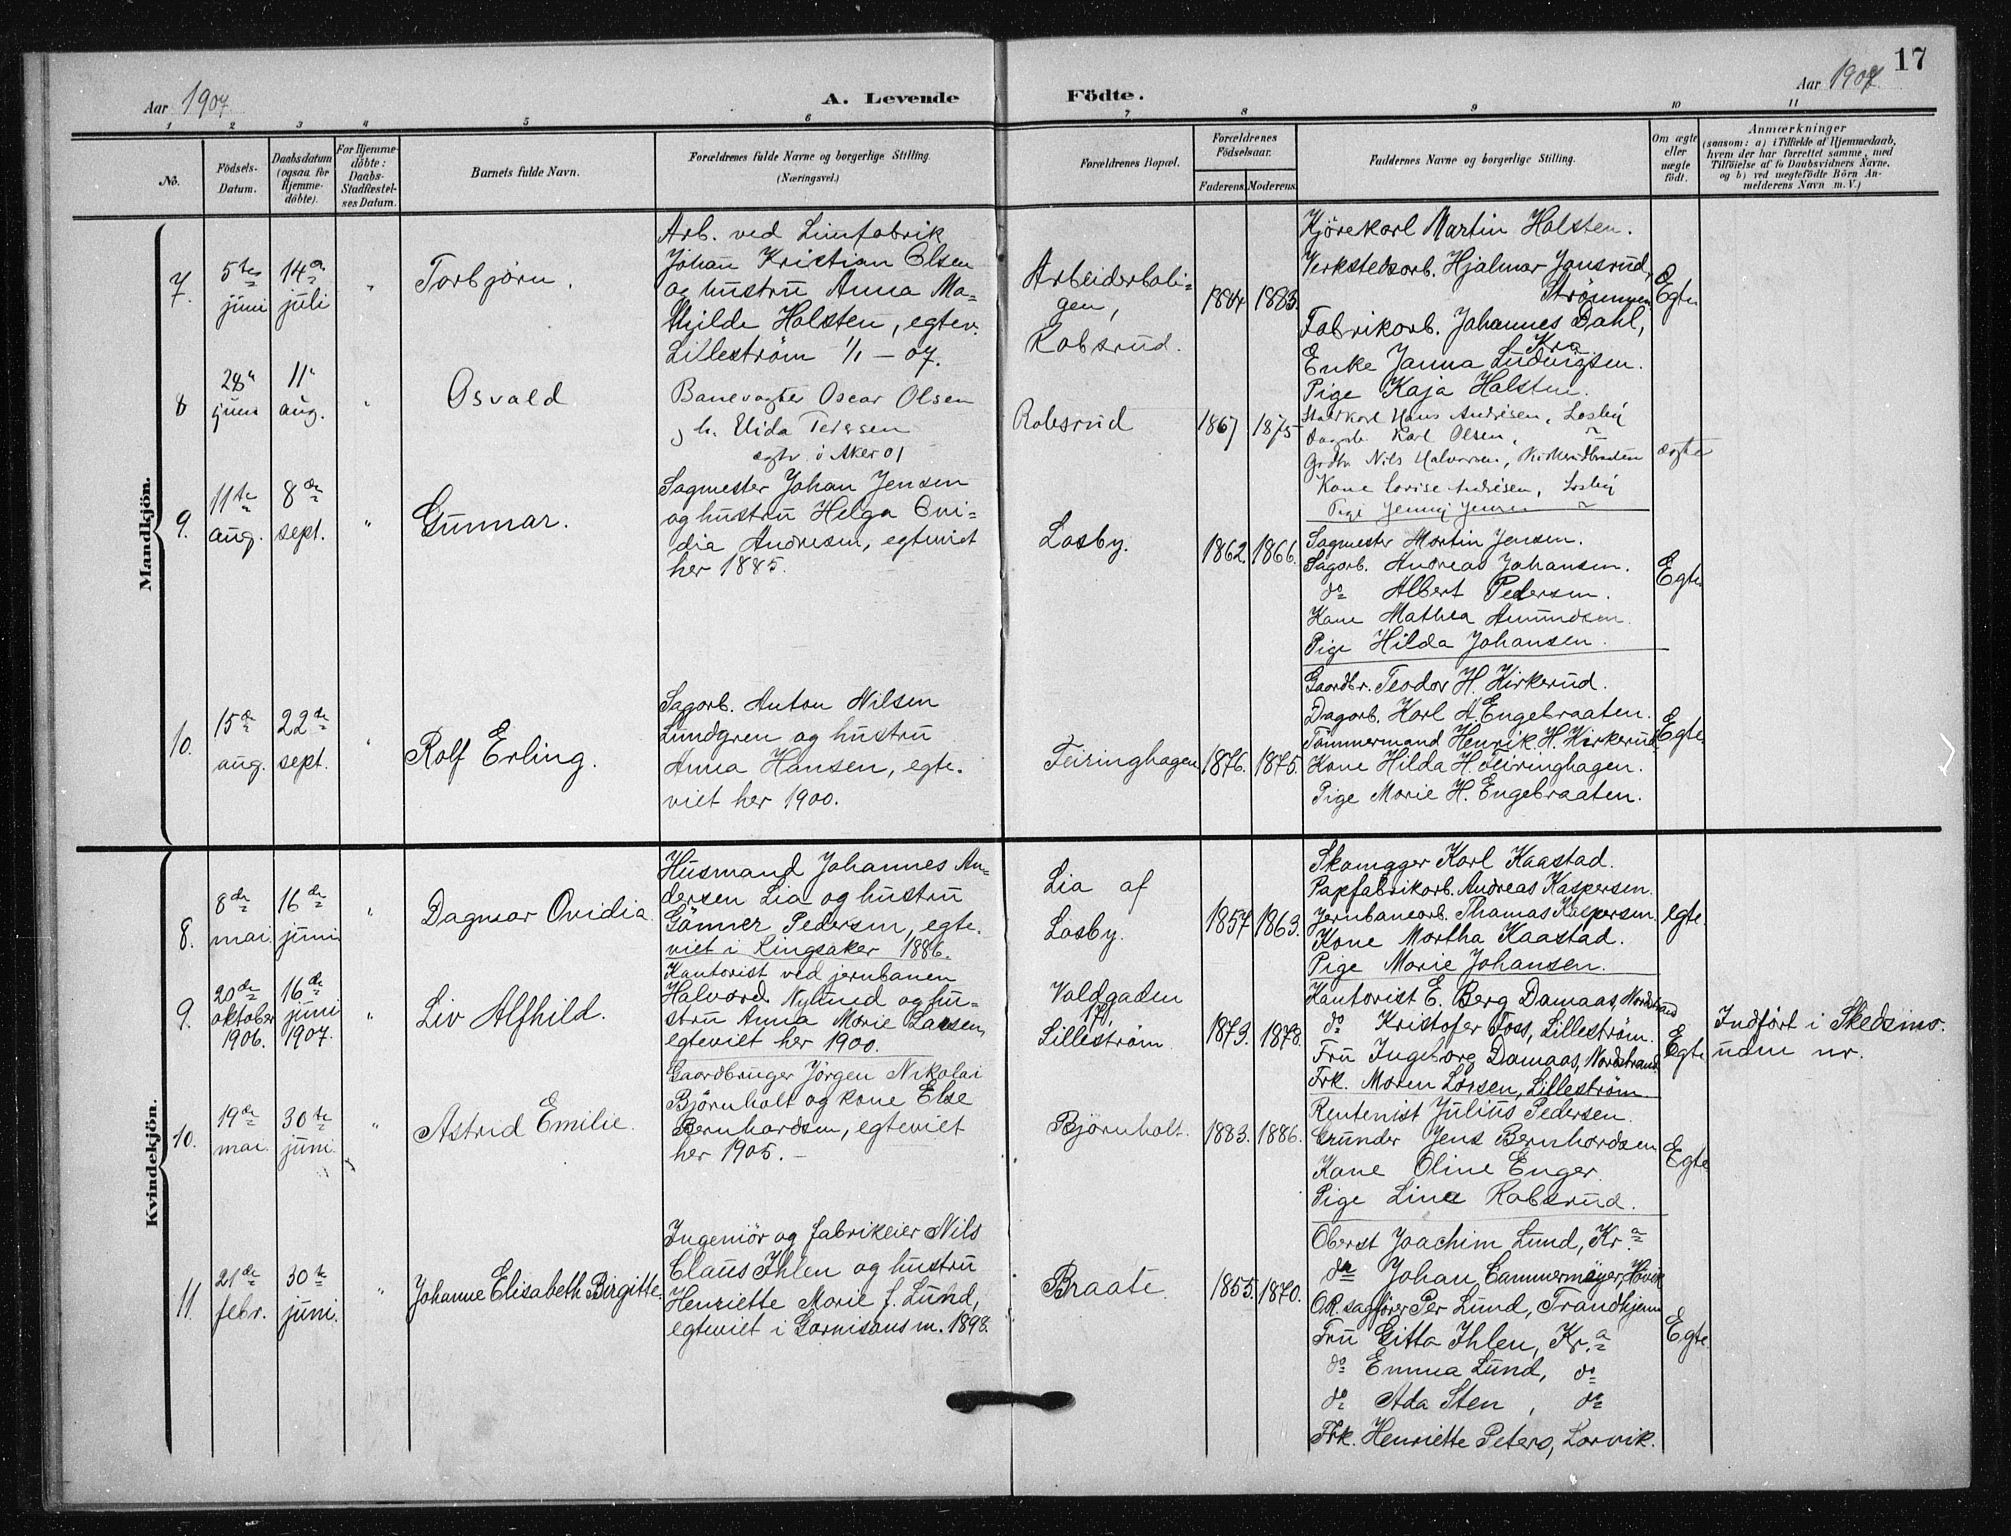 17
Aar 1907
A. Levende
Födte.
Aar 1907.
1 2 3 4 5 6 7 8 9 10 11
No.
Födsels-
Datum.
Daabsdatum
(ogsaa for
Hjemme-
döbte).
For Hjemme-
döbte:
Daabs-
Stadfæstel-
ses Datum.
Barnets fulde Navn.
Forældrenes fulde Navne og borgerlige Stilling.
(Næringsvei.)
Forældrenes Bopæl.
Forældrenes
Födselsaar.
Faderens. Moderens.
Faddernes Navne og borgerlige Stilling.
Om ægte
eller
uægte
födt.
Anmærkninger
(saasom: a) i Tilfælde af Hjemmedaab,
hvem der har forrettet samme, med
Tilföielse af to Daabsvidners Navne,
og b) ved uegtefödte Börn An-
melderens Navn m. V.)
Mandkjön.
7.
5te
juni
14de
juli
"
Torbjörn.
Arb. ved Limfabrik
Johan Kristian Olsen
og hustru Anna Ma-
thilde Halsten, egtev.
Lilleström 1/1 - 07.
Arbeiderboli-
gen,
Robsrud.
1884 1883.
Kjörekarl Martin Halsten.
Verkstedsarb. Hjalmar Jonsrud,
Strömmen
Fabrikarb. Johannes Dahl,
Kra
Enke Janna Ludvigsen.
Pige Kaja Halsten.
Egte
8
28"
juni
11"
aug.
"
Osvald
Banevogter Oscar Olsen
h. Elida Petersen
egtv. i Aker 01
Robsrud
1867 1875
Staldkarl Hans Andrésen, Losby
Dagarb. Karl Olsen, "
Grdbr. Nils Halvorsen, Kirkerudbraaten
Kone Lovise Andrésen, Losby
Pige Jenny Jensen "
ægte
9.
11te
aug.
8de
sept.
"
Gunnar.
Sagmester Johan Jensen
og hustru Helga Ovi-
dia Andresen, egteviet
her 1885.
Losby.
1862. 1866.
Sagmester Martin Jensen.
Sagarb. Andreas Johansen.
do Albert Pedersen.
Kone Mathea Amundsen.
Pige Hilda Johansen.
Egte
10.
15de
aug.
22de
sept.
"
Rolf Erling.
Sagarb. Anton Nilsen
Lundgren og hustru
Anna Hansen, egte-
viet her 1900.
Feiringhagen
1876. 1875.
Gaardbr. Teodor H. Kirkerud.
Dagarb. Karl A. Engebraaten.
Tömmermand Henrik H. Kirkerud
Kone Hilda H. Feiringhagen.
Pige Marie H. Engebraaten.
Egte.
Kvindekjön.
8.
8de
mai.
16de
juni
"
Dagmar Ovidia.
Husmand Johannes An-
dersen Lia og hustru
Gönner Pedersen, egte-
viet i Ringsaker 1886.
Lia af
Losby.
1857 1863.
Skomager Karl Kaastad.
Papfabrikarb. Andreas Kaspersen.
Jernbanearb. Thomas Kaspersen.
Kone Martha Kaastad.
Pige Marie Johansen.
egte
9.
20de
oktober
1906.
16de
juni
1907.
"
Liv Alfhild.
Kontorist ved jernbanen
Halvard Nylund og hu-
stru Anna Marie Larsen,
egteviet her 1900.
Voldgaden
Lilleström
1873. 1878.
Kontorist E. Berg Damaas, Nordstrand
do Kristofer Foss, Lilleström.
Fru Ingeborg Damaas, Nordstrand
Frk. Maren Larsen, Lilleström.
Egte
Indfört i Skedsmo.
uden nr.
10.
19de
mai.
30te
juni.
"
Astrid Emilie.
Gaardbruger Jörgen Nikolai
Björnholt og kone Else
Bernhardsen, egteviet
her 1905. -
Björnholt.
1883. 1886.
Rentenist Julius Pedersen.
Grunder Jens Bernhardsen
Kone Oline Enger.
Pige Lina Robsrud.
Egte
11.
21de
febr.
30te
juni.
"
Johanne Elisabeth Birgitte.
Ingeniör og fabrikeier Nils
Claus Ihlen og hustru
Henriette Marie f. Lund,
egteviet i Garnisons m. 1898.
Braate.
1855. 1870.
Oberst Joachim Lund, Kr.a
do Johan Cammermeyer, Hövik
O.R. sagförer Per Lund, Trondhjem
Fru Gitta Ihlen, Kr.a
do Emma Lund, do
do Ada Sten, do
Frk. Henriette Peters, Larvik.
Egte.